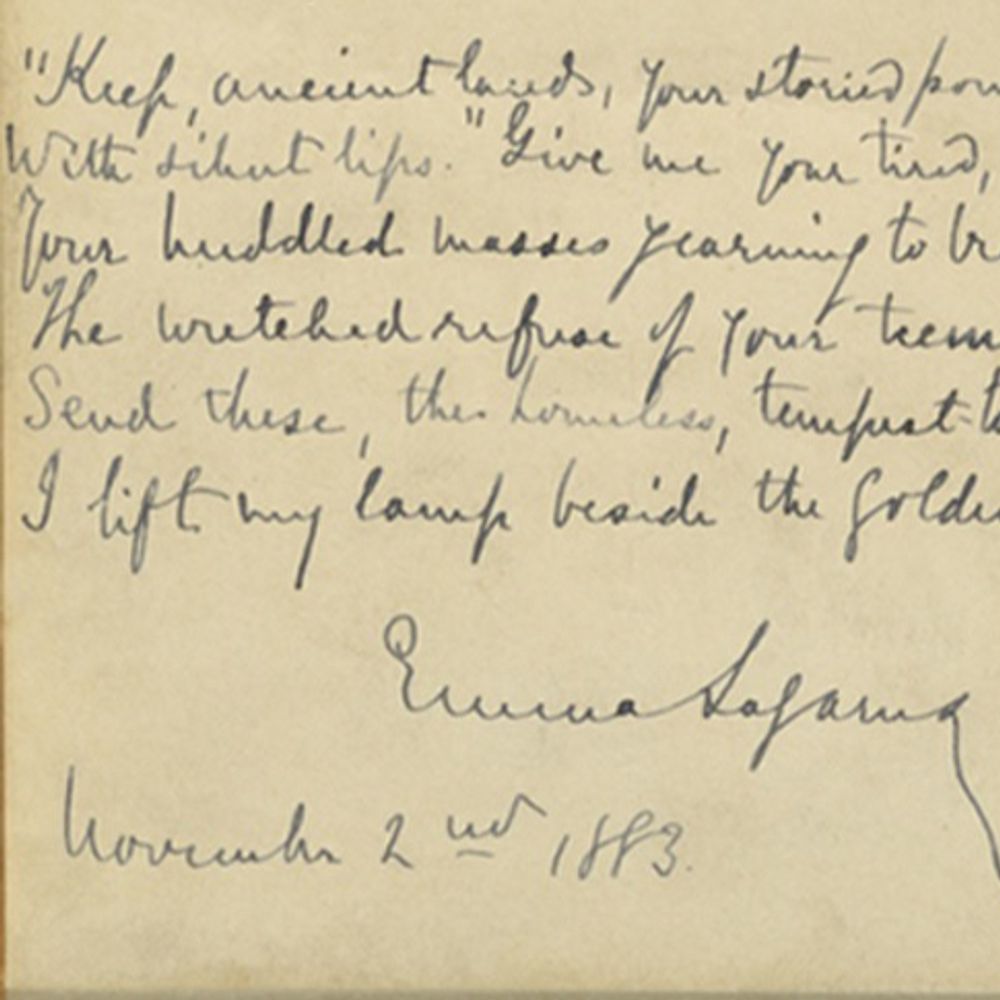 "Keep, ancient lands, your storied pom
With silent lips. "Give me your tired,
Your huddled masses yearning to br
The wretched refuse of your teem
Send these, the homeless, tempest-t
I lift my lamp beside the golde
Emma Lazarus
November 2nd 1883.